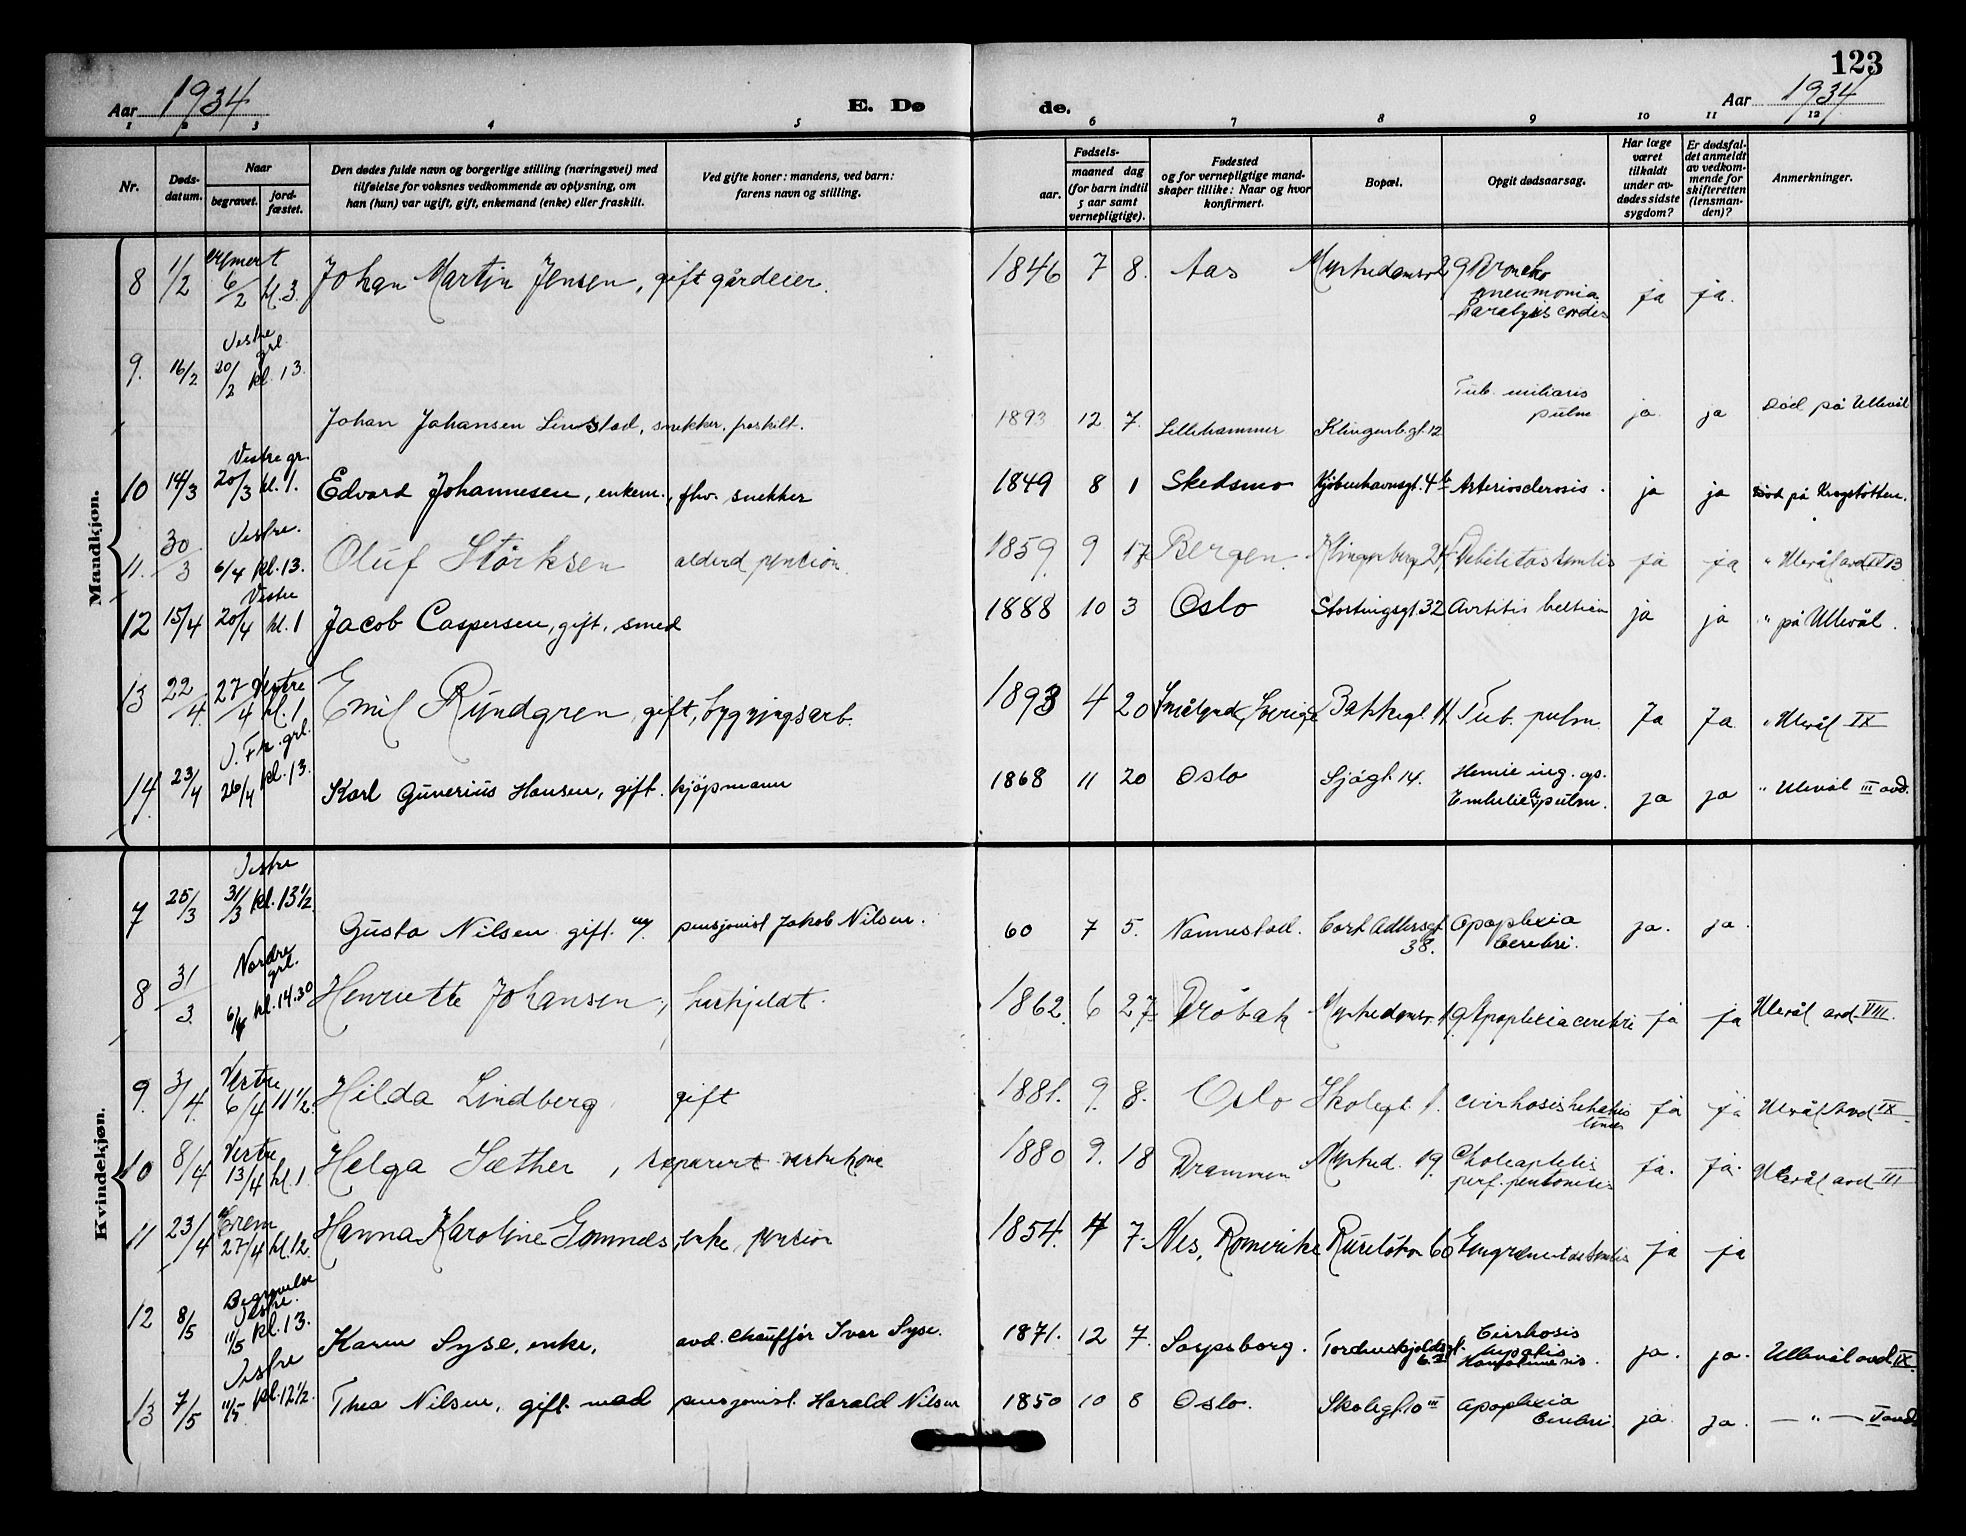 123
Aar 1934 E. Døde. Aar 1934
1 2 3 4 5 6 7 8 9 10 11 12
Nr.
Døds-
datum.
Naar
begravet.
jord-
fæstet.
Den dødes fulde navn og borgerlige stilling (næringsvei) med
tilføielse for voksnes vedkommende av oplysning, om
han (hun) var ugift, gift, enkemand (enke) eller fraskilt.
Ved gifte koner: mandens, ved barn:
farens navn og stilling.
Fødsels-
aar.
maaned dag
(for barn indtil
5 aar samt
vernepligtige).
Fødested
og for vernepligtige mand-
skaper tillike: Naar og hvor
konfirmert.
Bopæl.
Opgit dødsaarsag.
Har læge
været
tilkaldt
under av-
dødes sidste
sygdom?
Er dødsfal-
det anmeldt
av vedkom-
mende for
skifteretten
(lensman-
den)?
Anmerkninger.
Mandkjøn.
8 1/2 6/2 kl. 3. Johan Martin Jensen, gift gårdeier. 1846 7 8. Aas Broncho pneumonia Paralysis cordis ja ja.
9. 16/2 Vestre grl. 20/2 kl. 13. Johan Johansen Linstad, snekker, fraskilt. 1893 12 7. Lillehammer Klingenb.gt. 12 Tub. miliaris pulm ja. ja død på Ullevål
10 14/3 Vestre gr. 20/3 kl. 1. Edvard Johannesen, enkem., fhv. snekker 1849 8 1 Skedsmo Arteriosclerosis. ja ja død på Krogstøtten.
11. 30/3 Vestre. 6/4 kl. 13. Oluf Störksen alderd pension. 1859. 9 17 Bergen. ja ja
12 15/4 Vestre 20/4 kl. 1 Jacob Caspersen, gift, smed 1888 10 3 Oslo Stortingsgt. 32 ja ja " på Ullevål.
13 22/4. 27/4 Vestre kl. 1 Emil Ryndgren, gift, bygningsarb. 1893 4 20 Småland, Sverige Bakkegt. 11 Tub. pulm. Ja Ja " Ulevål IX
14. 23/4 V. Fr. grl. 26/4 kl. 13. Karl Gunerius Hansen, gift. kjøpmann 1868 11 20 Oslo Sjøgt. 14. Hernie ing. op. Embolie a. pulm. ja ja " Ulevål III avd.
Kvindekjøn.
7 25/3 Vestre 31/3 kl. 13½. Gusta Nilsen gift m/ pensjonist Jakob Nilsen. 60 7 5. Nannestad. Cort Adlersgt 38. Apoplexia Cerebri. ja. ja.
8 31/3. Nordre grl. 6/4 kl. 14.30 Henriette Johansen, 1862. 6 27 Drøbak Apoplexia cerebri ja ja Ulevål avd. VIII.
9. 3/4. Vestre 6/4 11½. Hilda Lindberg gift 1881. 9. 8. Oslo Skolegt. 1. cirrhosis hepatis ja ja Ulevål Avd IX
10 8/4 Vestre 13/4 kl. 1 Helga Sæther, separert vaskekone 1880 9. 18 Drammen 19. ja. ja. Ulevål avd III
11 23/4 Crem 27/4 kl. 12. Hanna Karoline enke, pension 1854. 4 7. Nes, Romerike Ruseløkv 60 ja ja
12 8/5 Begravelse Vestre. 11/5 kl. 13. Karen Syse, enke, avd. Chauffør Ivar Syse. 1871. 12 7. Sarpsborg. Tordenskjoldsgt. Cirrhosis hepatis ja. ja. Ullevål avd IX.
13 7/5 Vestre 11/5 kl. 12½. Thea Nilsen, gift med pensjonist Harald Nilsen 1850 10 8 Oslo. Skolegt 10 III Apoplexia Cerebri. ja. ja. — " — avd